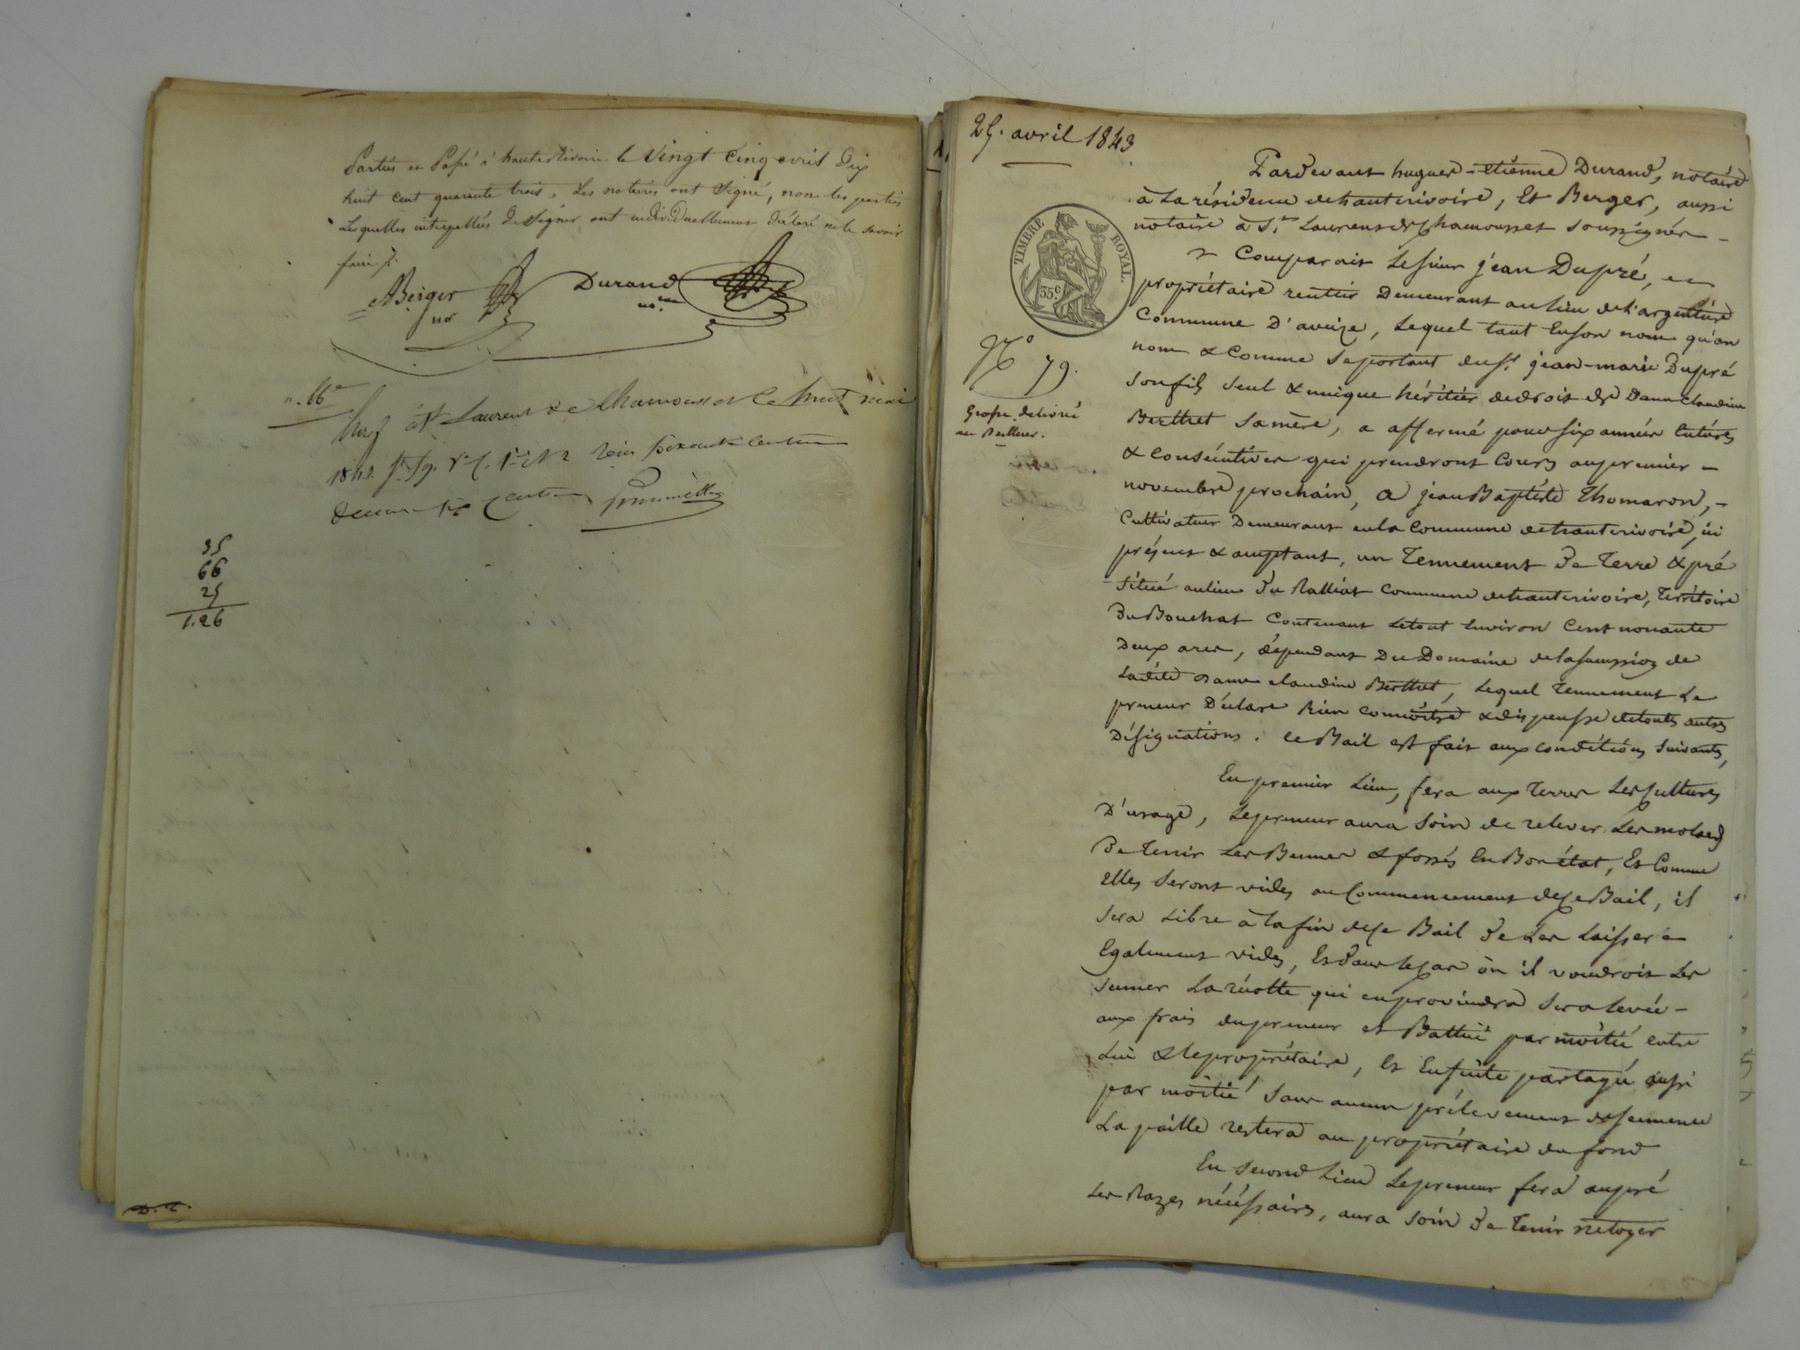 Parties en Passé à hauterivoire le Vingt Cinq avril dix
huit cent quarante trois, Les notaires ont signé, non les parties
Lesquelles interpellées de Signer ont individuellement déclaré ne le savoir
faire
Berger
nre
Durand
nre
St Laurent de Chamousset Le huit mai
35
66
25
1.26
25. avril 1843
TIMBRE ROYAL
35 c
N° 79.
Grosse delivré
au Bailleur.
Pardevant hugues-etiènne Durand, notaire
à La résidence de hauterivoire, Et Berger, aussi
notaire à St Laurent de Chamousset soussignés
Comparait Le sieur jean Dupré,
propriétaire rentier Demeurant au lieu de l'argentière
Commune D'aveize, Lequel tant En son nom qu'au
nom & Comme se portant du St jean-marie Dupré
son fils seul & unique héritier de droit de Dame Claudine
Berthet sa mère, a affermé pour six années Entières
& Consécutives qui prendront Cours au premier
novembre prochain, a jean Baptiste Thomaron,
Cultivateur Demeurant en la Commune de hauterivoire, ici
présent & acceptant, un Tennement De Terre & pré
situé au lieu Du Ralliat Commune de hauterivoire, Territoire
Du Bouchat Contenant Le tout Environ Cent nonante
Deux ares, dépendant Du Domaine de la succession de
Ladite Dame claudine Berthet, Lequel Tennement Le
preneur Déclare Bien connoître & dispense de toute autres
Désignations. ce Bail est fait aux conditions suivantes,
En premier Lieu, fera aux Terres Les Cultures
D'usage, Le preneur aura Soin de relever Les
De Tenir Les & fossés En Bon état, Et Comme
Elles Seront vides au Commencement de ce Bail, il
Sera Libre à la fin de ce Bail De Les Laisser
Egalement vides, Et Dans le cas où il voudroit Les
semer La récolte qui en proviendra Sera levée
aux frais du preneur et Battue par moitié entre
Lui & le propriétaire, Et Ensuite partagée aussi
par moitié Sans aucun prélevement de semence
La paille restera au propriétaire du fond
En second Lieu Le preneur fera au pré
Les Razes nécéssaires, aura soin De Tenir netoyer